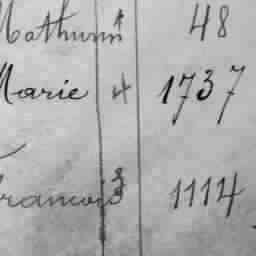 Mathurin 4 48
Marie 4 1737
Francois 3 1114